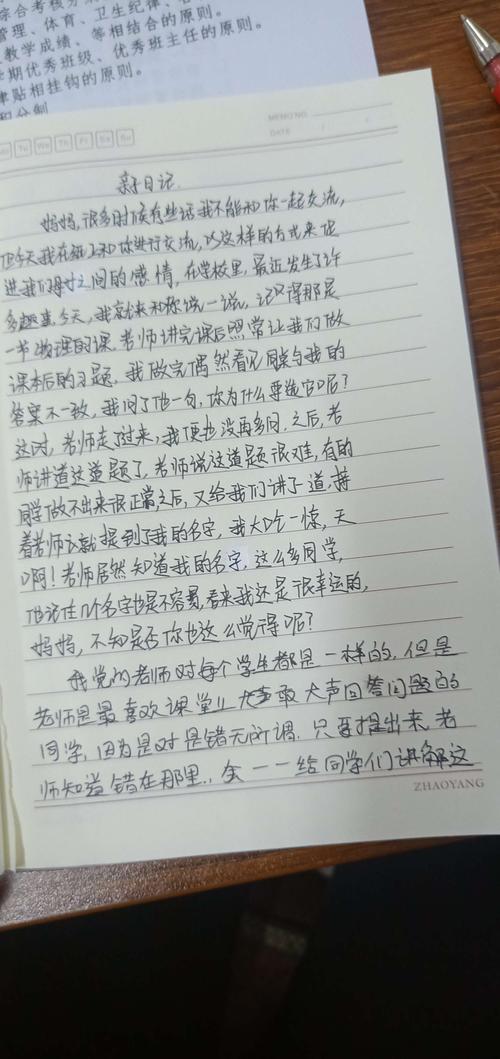 综合考核分
管理、体育、卫生纪律、
教学成绩、等相结合的原则。
期优秀班级、优秀班主任的原则。
津贴相挂钩的原则。
和分制
Tu We Th Fr Sa Su
MEMO NO.
DATE / /
亲子日记.
妈妈,很多时候有些话我不能和你一起交流,
但今天我在纸上和你进行交流,以这样的方式来促
进我们母子之间的感情,在学校里,最近发生了许
多趣事.今天,我就来和你说一说,记得那是
一节物理的课.老师讲完课后照常让我们做
课本后的习题,我做完偶然看见同桌与我的
答案不一致,我问了他一句,你为什么要选它呢?
这时,老师走了过来,我便也没再多问.之后,老
师讲道这道题了,老师说这道题很难,有的
同学做不出来很正常,之后,又给我们讲了一道,接
着老师就提到了我的名字,我大吃一惊,天
啊!老师居然知道我的名字,这么多同学,
他记住几个名字也是不容易,看来我还是很幸运的,
妈妈,不知是否你也这么觉得呢?
我觉的老师对每个学生都是一样的.但是
老师是最喜欢课堂儿敢大声回答问题的
同学,因为是对是错无所谓.只要提出来,老
师知道错在那里.,会一一给同学们讲解这
ZHAOYANG